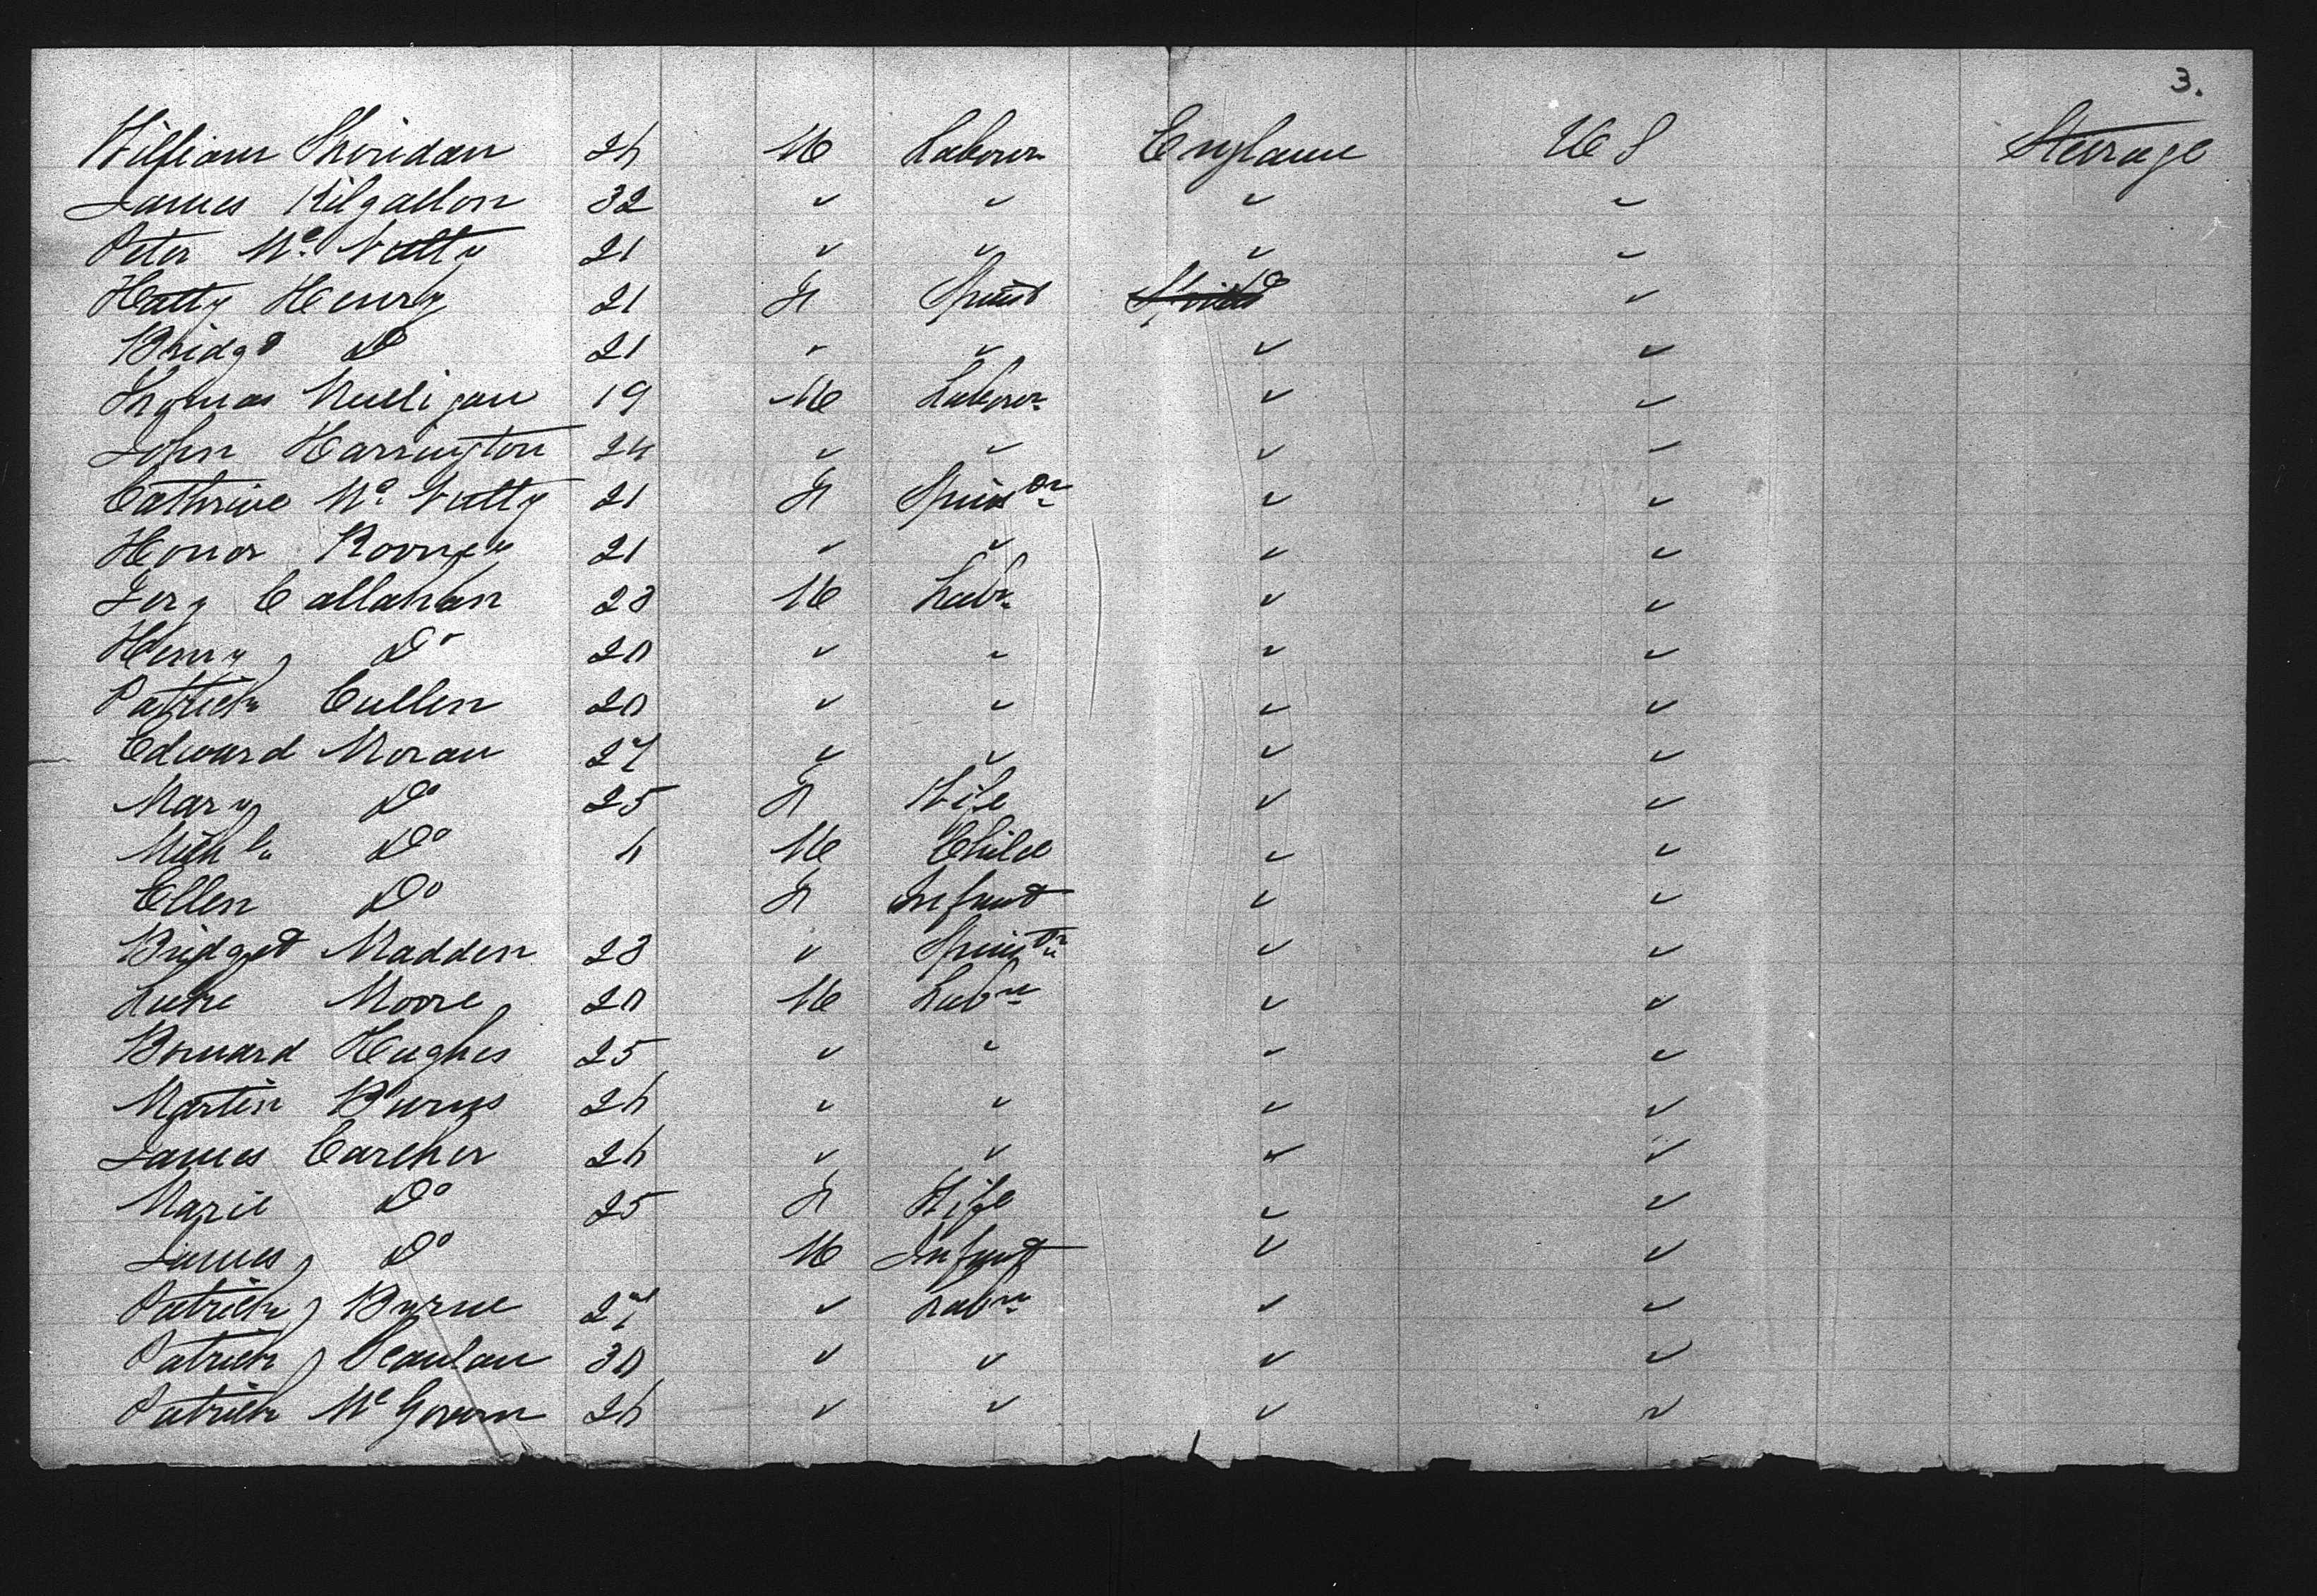 3.
William Sheridan 26 M Labourr England U S Steerage
James Kilgallon 32 " " " "
Peter Mc Nulty 21 " " " "
Hatty Henry 21 F Spinst "
Bridgt Do 21 " " " "
Thomas Mulligan 19 M Labourr " "
John Harrington 24 " " " "
Cathrine Mc Nulty 21 F Spinstr " "
Honor Rooney 21 " " " "
Jery Callahan 23 M Labr " "
Henry Do 20 " " " "
Patrick Cullen 20 " " " "
Edward Moran 27 " " " "
Mary Do 25 F Wife " "
Michl Do 6 M Child " "
Ellen Do F Infant " "
Bridget Madden 23 " Spinstr " "
Luke Moore 20 M Labr " "
Bernard Hughes 25 " " " "
Martin Burns 26 " " " "
James Carcher 26 " " " "
Marie Do 25 F Wife " "
James Do M Infant " "
Patrick Byrne 27 " Labr " "
Patrick Scanlan 30 " " " "
Patrick Mc Govern 26 " " " "